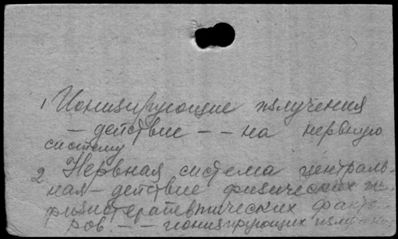 1 Ионизирующие излучения
- действие - - на нервную
систему
2 Нервная система централь-
ная - действие физических и
физиотерапевтических факто-
ров - - ионизирующих излуче-